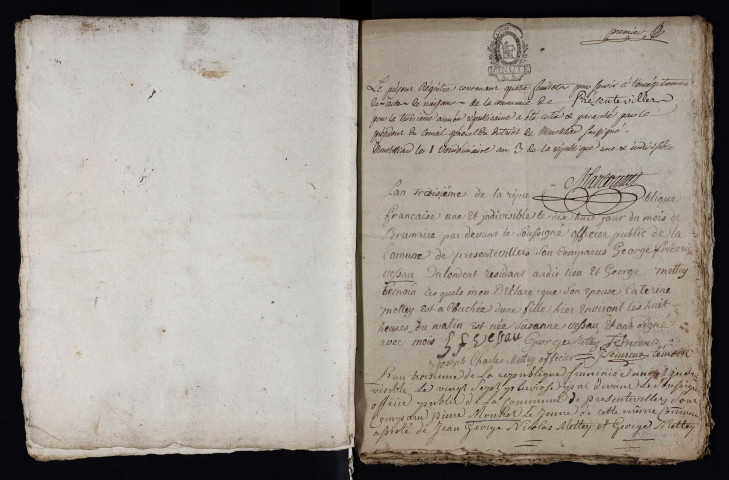 premier
MINUTE
Le présent Registre contenant quatre feuillets pour servir à l'enregistrement
des actes de naissance de la commune de Présentevillers
pour la troisième année républicaine a été coté & paraphé par le
président du Conseil général du district de Montbéliard soussigné.
Montbéliard le 1 Vendémiaire an 3 de la république une & indivisible
Lan troisième de la répu blique
francaise une et jndivisible le dix huit jour du mois de
Brumaire par devant le Soussigné officier public de la
Comune de presentevillers Son Comparus George frideric
vessau residant audit lieu et George mettey
temoin Les quels mon déClaré que Son epouse Caterine
mettey est acCouchée dune fille hier Environt les huit
heures du matin est née Suzanne vessau et ont signé
avec moi g f vessau George Mettey frideric
joseph Charles Mettey officier temoin
Lan troisieme de la republique francaise une et jndi
visible le vingt Sept pluviose par devant le Soussigné
officier publit de la Commune de presentevillers Sont
comparu pierre Mounier Le jeune de cette même Commune
assisté de Jean George Nicolas Mettey et George Mettey